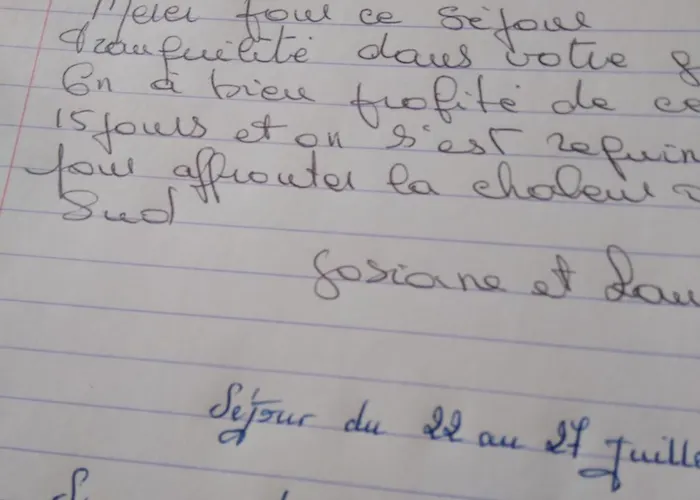 Merci pour ce séjour
tranquilité dans votre g
On a bien profité de ce
15 jours et on s'est requin
pour affronter la chaleur
Sud
Josiane et
Séjour du 22 au 27 Juille